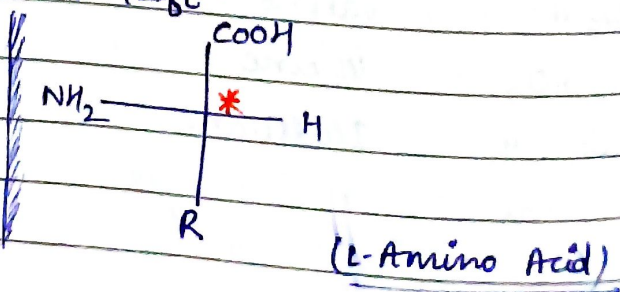 COOH
NH₂ * H
R
(L-Amino Acid)